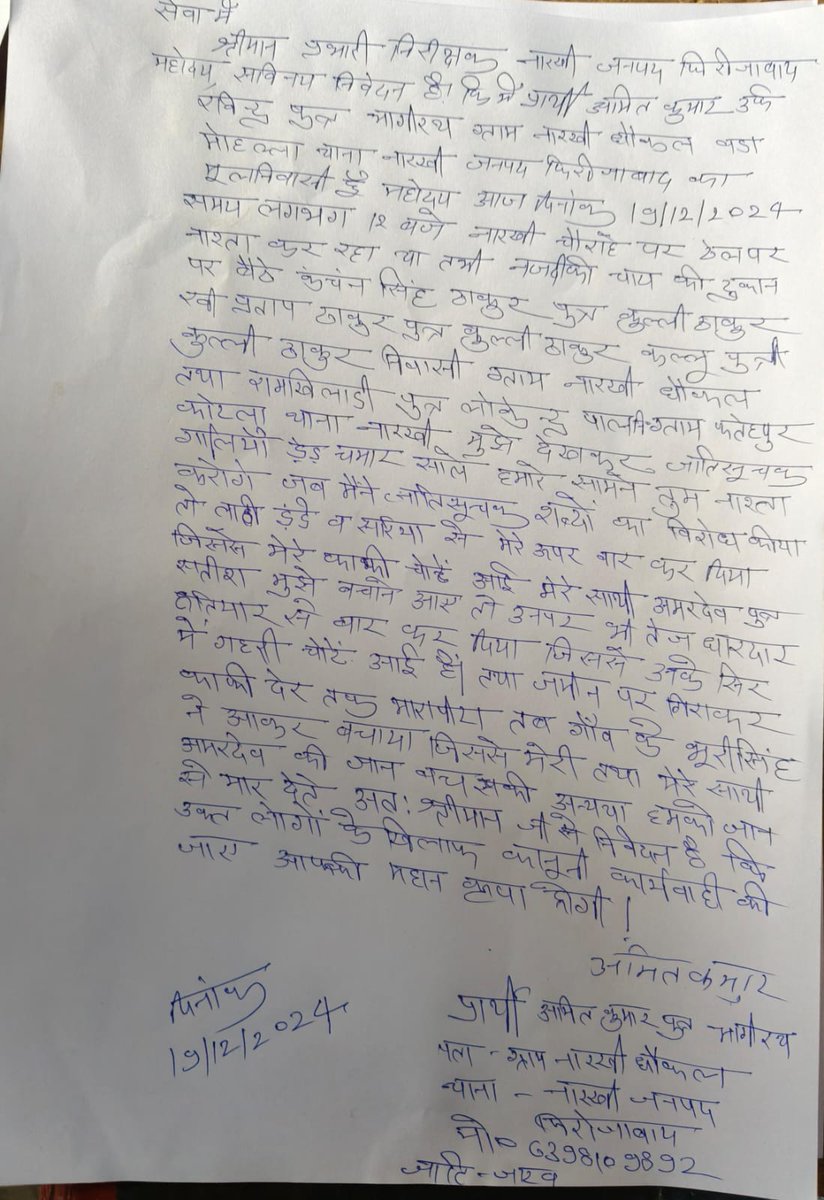 सेवा में
श्रीमान प्रभारी निरीक्षक नारखी जनपद फिरोजाबाद
महोदय, सविनय निवेदन है। कि मैं प्रार्थी अमित कुमार उर्फ
रविन्द्र पुत्र भागीरथ ग्राम नारखी धौकल बडा
मोहल्ला थाना नारखी जनपद फिरोजाबाद का
मूलनिवासी हूँ महोदय आज दिनांक 19/12/2024
समय लगभग 12 बजे नारखी चौराहे पर ठेलपर
नाश्ता कर रहा था तभी नजदीकी चाय की दुकान
पर बैठे कंचन सिंह ठाकुर पुत्र कुल्ली ठाकुर
रवी प्रताप ठाकुर पुत्र कुल्ली ठाकुर कल्लू पुत्र
कुल्ली ठाकुर निवासी ग्राम नारखी धौकल
तथा रामखिलाडी पुत्र लोकेन्द्र ग्राम फतेहपुर
कोटला थाना नारखी मुझे देखकर जातिसूचक
गालियों ड़ेड़ चमार साले हमारे सामने तुम नाश्ता
करोगे जब मैंने जातिसूचक शब्दों का विरोध कीया
तो लाठी डंडे व सरिया से मेरे ऊपर वार कर दिया
जिससे मेरे काफी चोटें आई मेरे साथी अमरदेव पुत्र
सतीश मुझे बचाने आए तो उनपर भी तेज धारदार
हतियार से वार कर दिया जिससे उनके सिर
में गहरी चोटें आई हैं। तथा जमीन पर गिराकर
काफी देर तक मारापीटा तब गाँव के भूरीसिंह
ने आकर बचाया जिससे मेरी तथा मेरे साथी
अमरदेव की जान बच सकी अन्यथा हमको जान
से मार देते अतः श्रीमान जी से निवेदन है कि
उक्त लोगों के खिलाफ कानूनी कार्यवाही की
जाए आपकी महान कृपा होगी।
अमित कुमार
दिनांक
19/12/2024
प्रार्थी अमित कुमार पुत्र भागीरथ
पता - ग्राम नारखी धौकल
थाना - नारखी जनपद
फिरोजाबाद
मो० 6398109892
जाति - जाटव